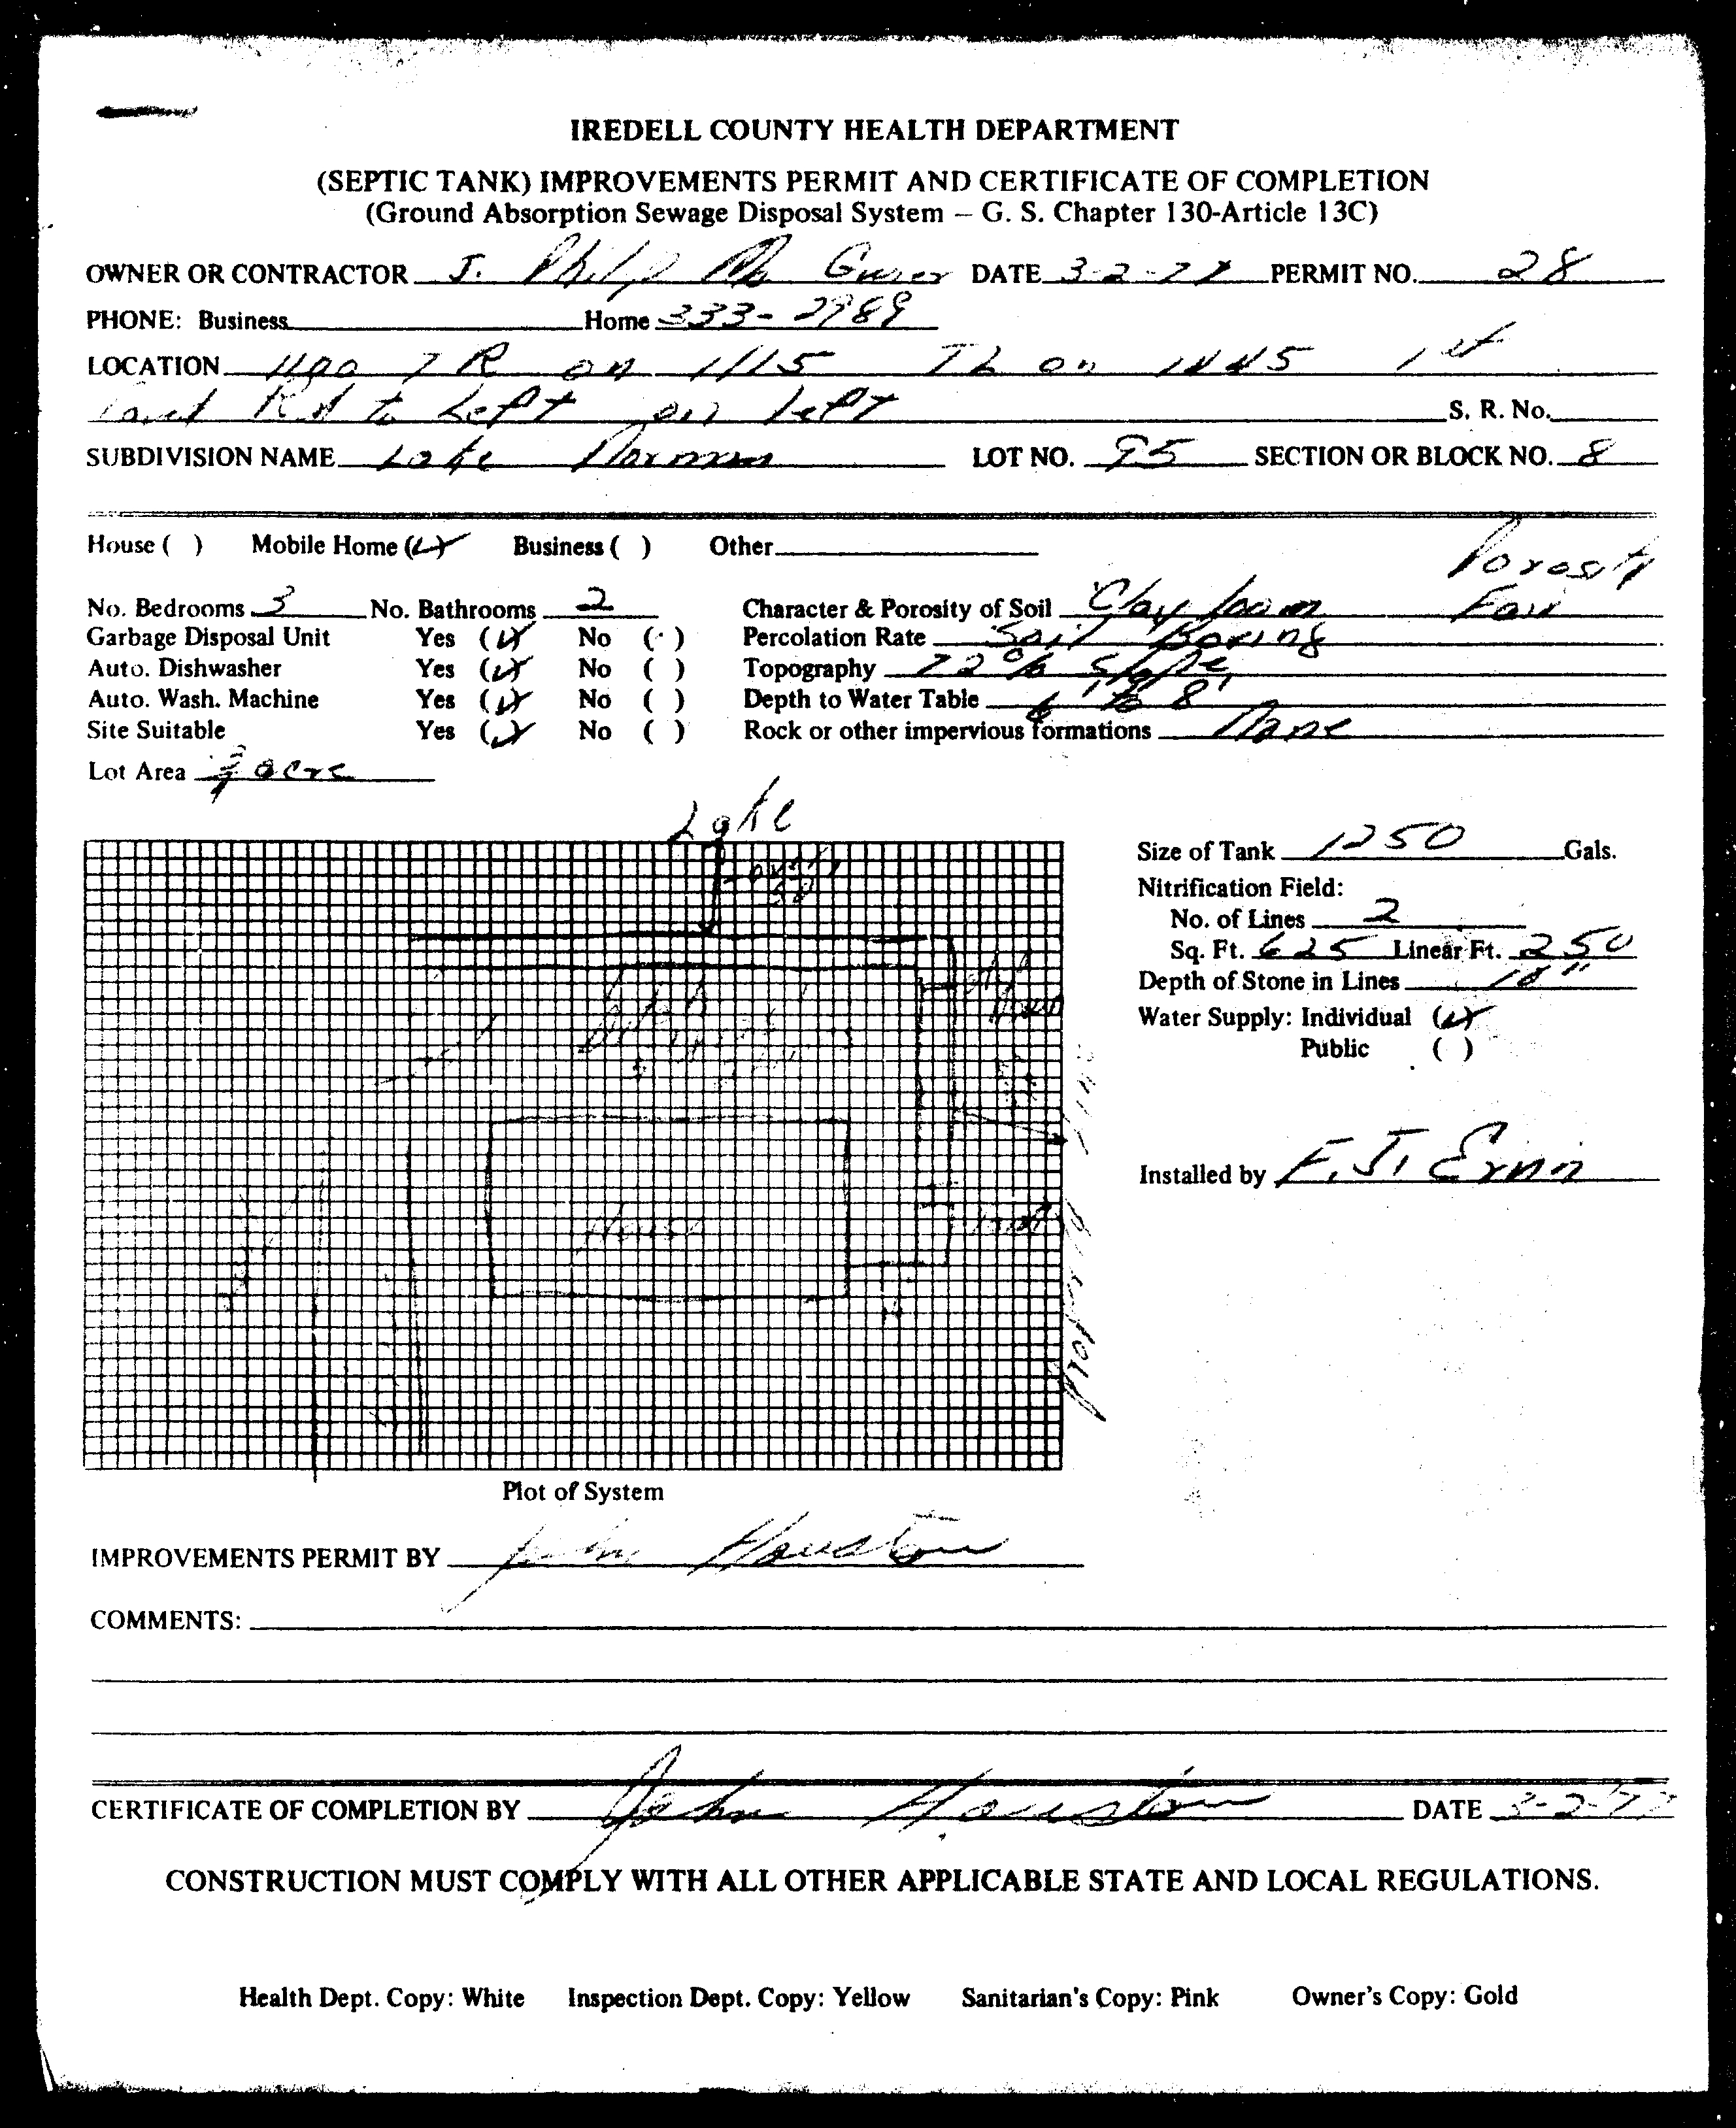 IREDELL COUNTY HEALTH DEPARTMENT
(SEPTIC TANK) IMPROVEMENTS PERMIT AND CERTIFICATE OF COMPLETION
(Ground Absorption Sewage Disposal System – G. S. Chapter 130-Article 13C)
OWNER OR CONTRACTOR J. Philip Mc DATE 3-2-77 PERMIT NO. 28
PHONE: Business Home 333-2989
LOCATION R on 1115 TL on 1st
Rd to Left on left S. R. No.
SUBDIVISION NAME Lake Norman LOT NO. 95 SECTION OR BLOCK NO. 8
House ( ) Mobile Home (✓) Business ( ) Other
Porosity
No. Bedrooms 3 No. Bathrooms 2 Character & Porosity of Soil Clay loam Fair
Garbage Disposal Unit Yes (✓) No ( ) Percolation Rate Soil Boring
Auto. Dishwasher Yes (✓) No ( ) Topography % slope
Auto. Wash. Machine Yes (✓) No ( ) Depth to Water Table 6' to 8'
Site Suitable Yes (✓) No ( ) Rock or other impervious formations None
Lot Area 3/4 acre
Lake
Size of Tank 1250 Gals.
Nitrification Field:
No. of Lines 2
Sq. Ft. 625 Linear Ft. 250
Depth of Stone in Lines 10"
Water Supply: Individual (✓)
Public ( )
House
Installed by F. J. Ervin
Plot of System
IMPROVEMENTS PERMIT BY John Houston
COMMENTS:
CERTIFICATE OF COMPLETION BY John Houston DATE 3-2-77
CONSTRUCTION MUST COMPLY WITH ALL OTHER APPLICABLE STATE AND LOCAL REGULATIONS.
Health Dept. Copy: White Inspection Dept. Copy: Yellow Sanitarian's Copy: Pink Owner's Copy: Gold